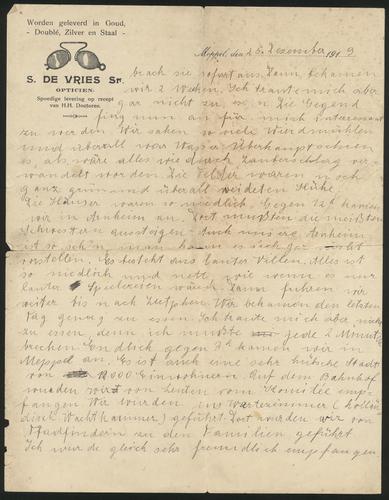 Worden geleverd in Goud,
- Doublé, Zilver en Staal -
S. DE VRIES Sr.
OPTICIEN.
Spoedige levering op recept
van H.H. Doctoren.
Meppel, den 26. Dezember 1919
brach sie sofort aus. Dann bekamen
wir 2 Wochen. Ich traute mich aber
gar nicht zu essen. Die Gegend
fing nun an für mich interessant
zu werden. Wir sahen so viele Windmühlen
und überall war Wasser. Überhaupt schien
es als wäre alles wie durch Zauberschlag ver-
wandelt worden. Die Felder waren noch
ganz grün und überall weideten Kühe.
Die Häuser waren so niedlich. Gegen Uh kamen
wir in Arnheim an. Dort mußten die meisten
Schwestern aussteigen. Auch
ist so schön, man kann es sich gar nicht
vorstellen. Es besteht aus lauter Villen. Alles ist
so niedlich und nett, wie wenn es nur
lauter Spielereien wären. Dann fuhren wir
weiter bis nach Zutphen. Wir bekamen den letzten
Tag genug zu essen. Ich traute mich aber nichts
zu essen, denn ich mußte jede 2 Minuten
brechen. Endlich gegen 7h kamen wir in
Meppel an. Es ist auch eine sehr hübsche Stadt
von 12,000 Einwohnern. Auf dem Bahnhof
wurden wir von Leuten vom Komitee emp-
fangen. Wir wurden ins Wartezimmer (hollän-
disch Wachtkammer) geführt. Dort wurden wir von
Pfadfindern zu den Familien geführt.
Ich wurde gleich sehr freundlich empfangen